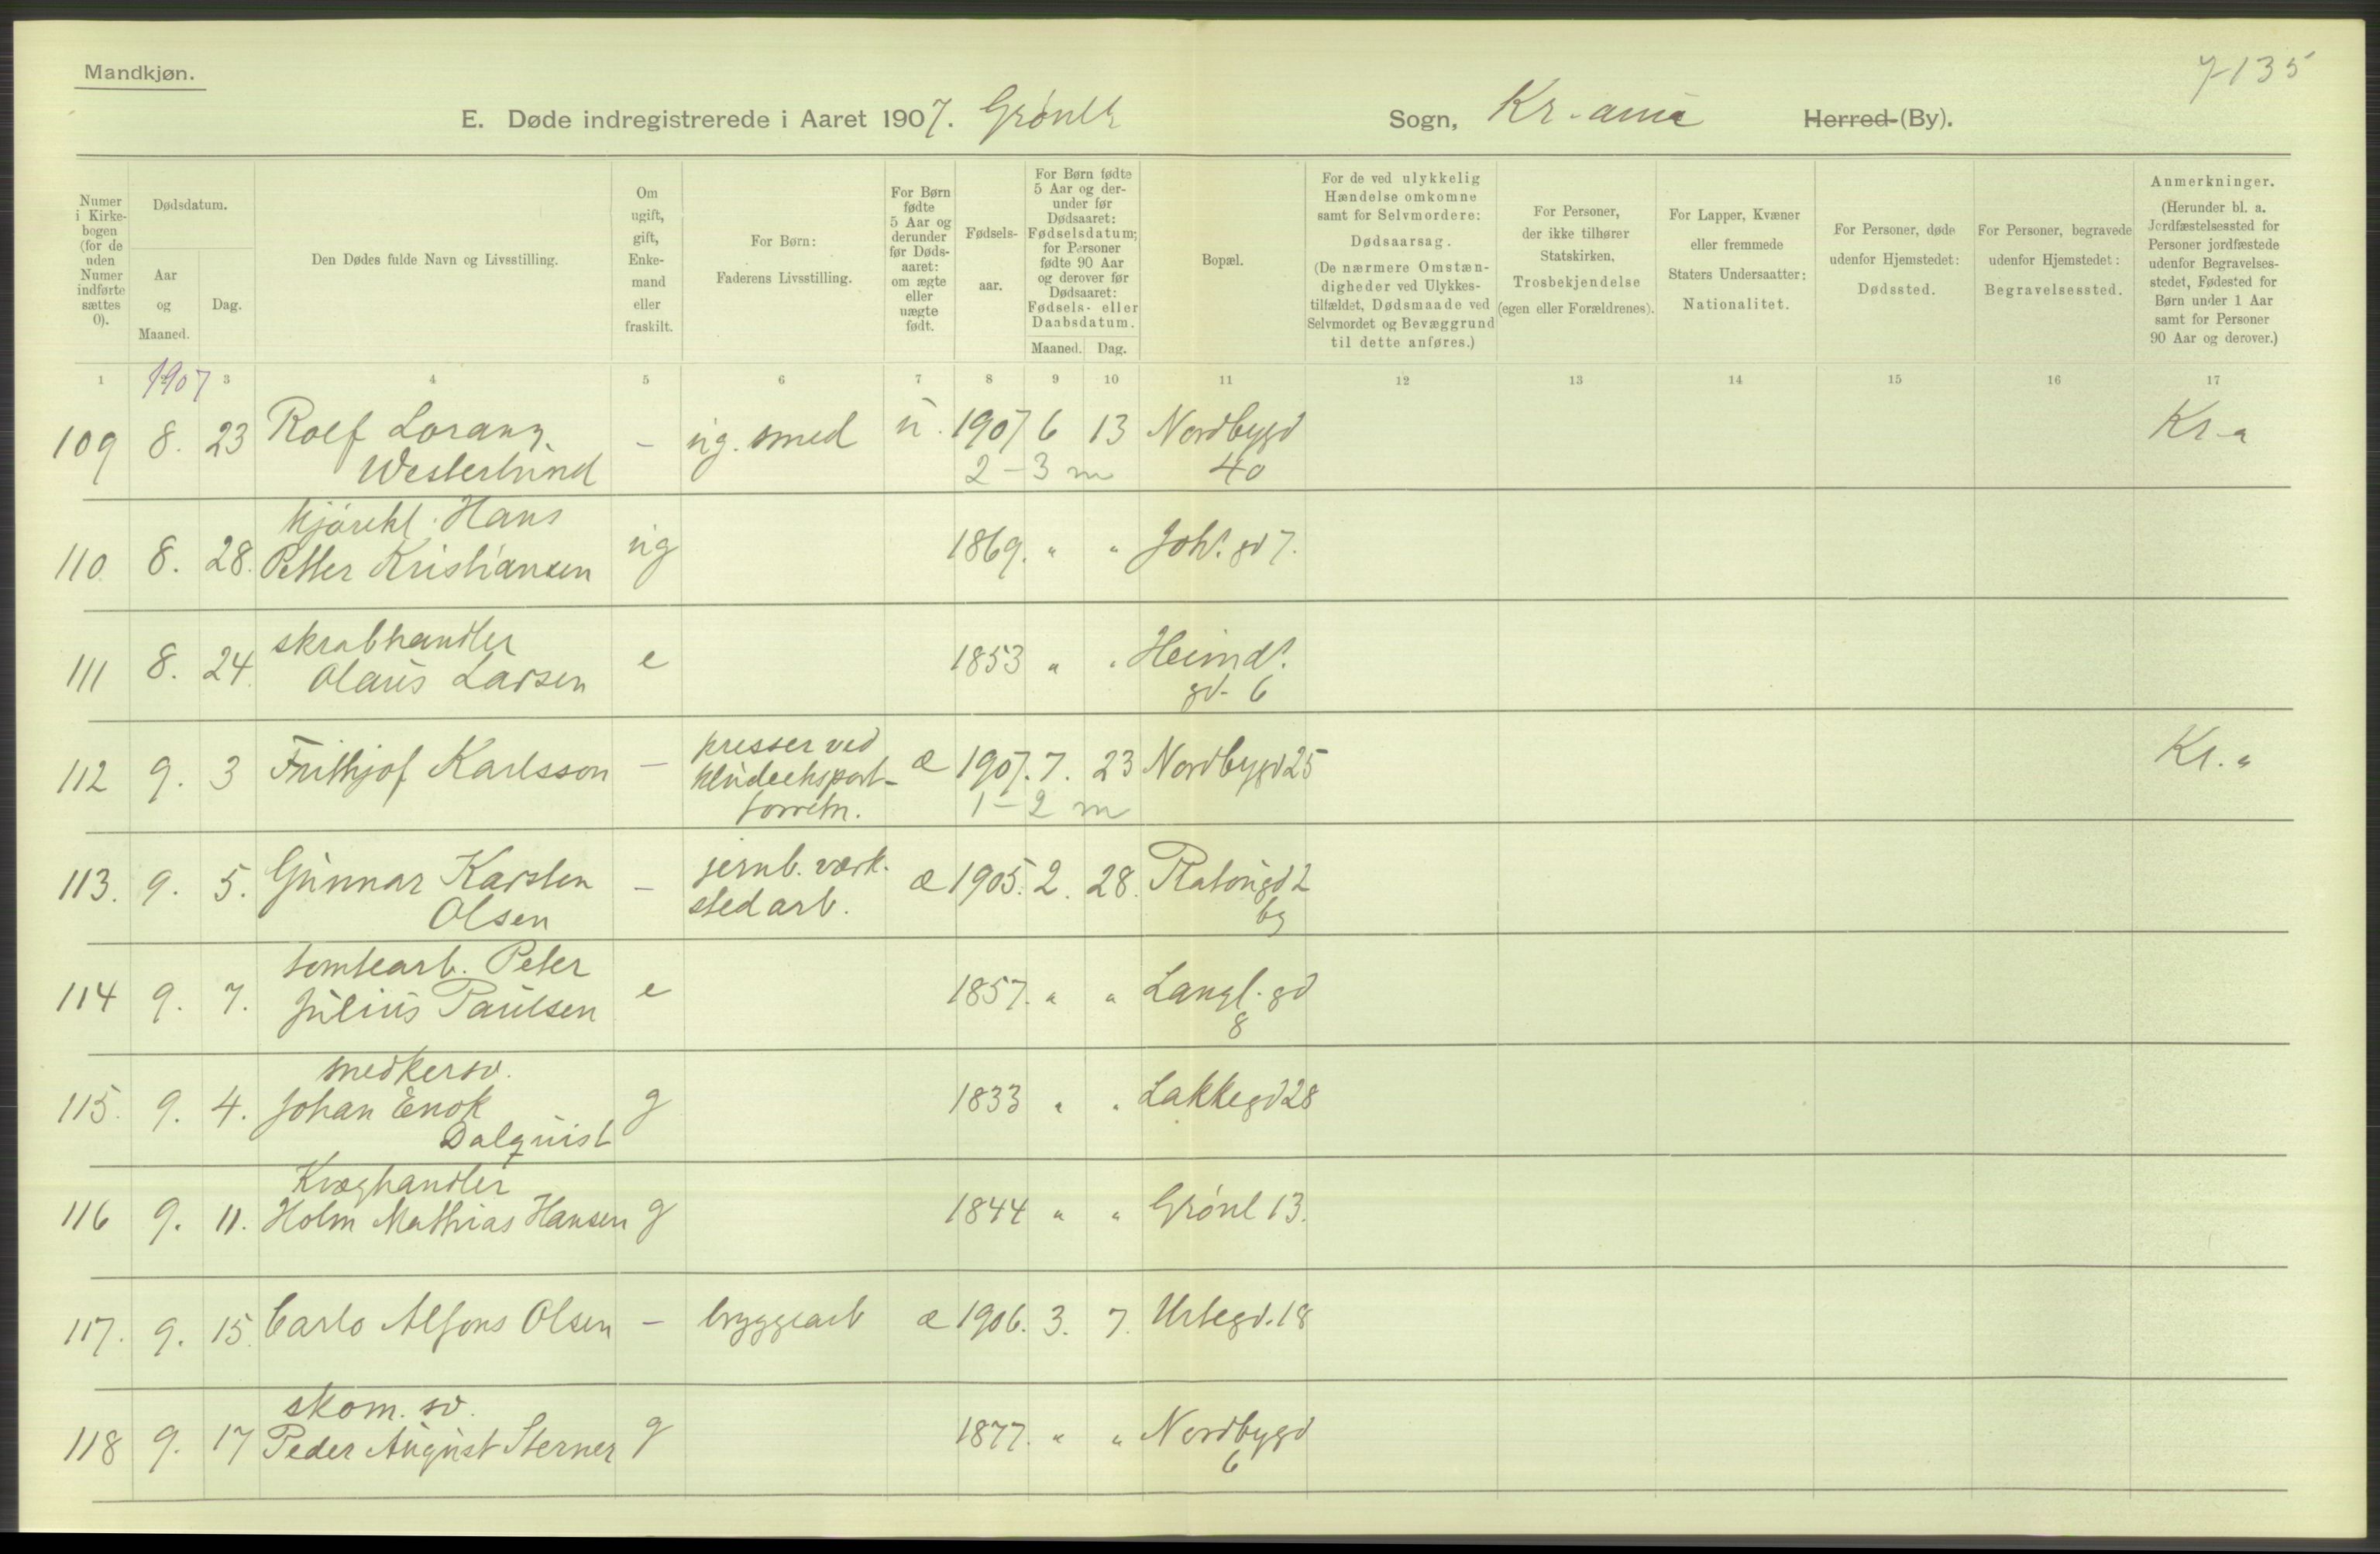 Mandkjøn.
7-135
E. Døde indregistrerede i Aaret 1907. Grønl. Sogn, Kr.ania Herred (By).
Numer i Kirkebogen (for de uden Numer indførte sættes 0).
Dødsdatum.
Aar og Maaned.
Dag.
Den Dødes fulde Navn og Livsstilling.
Om ugift, gift, Enkemand eller fraskilt.
For Børn: Faderens Livsstilling.
For Børn fødte 5 Aar og derunder før Dødsaaret: om ægte eller uægte født.
Fødselsaar.
For Børn fødte 5 Aar og derunder før Dødsaaret: Fødselsdatum; for Personer fødte 90 Aar og derover før Dødsaaret: Fødsels- eller Daabsdatum.
Maaned. Dag.
Bopæl.
For de ved ulykkelig Hændelse omkomne samt for Selvmordere: Dødsaarsag. (De nærmere Omstændigheder ved Ulykkestilfældet, Dødsmaade ved Selvmordet og Bevæggrund til dette anføres.)
For Personer, der ikke tilhører Statskirken, Trosbekjendelse (egen eller Forældrenes).
For Lapper, Kvæner eller fremmede Staters Undersaatter: Nationalitet.
For Personer, døde udenfor Hjemstedet: Dødssted.
For Personer, begravede udenfor Hjemstedet: Begravelsessted.
Anmerkninger. (Herunder bl. a. Jordfæstelsessted for Personer jordfæstede udenfor Begravelsesstedet, Fødested for Børn under 1 Aar samt for Personer 90 Aar og derover.)
1 1907 3 4 5 6 7 8 9 10 11 12 13 14 15 16 17
109 8. 23 Rolf Lorang - ug. smed u. 1907 6 13 Nordbygd Kr-a
Westerlund 2-3 m 40
kjørekl. Hans
110 8. 28. Petter Kristiansen ug 1869. " " Joh'. gd 7.
skrabhandler
111 8. 24. Olaus Larsen e 1853 " " Heimd'.
gd. 6
presser ved
112 9. 3 Frithjof Karlsson - kludeeksport- æ 1907. 7. 23 Nordbygd 25 Kr.a
forretn. 1-2 m
113. 9. 5. Gunnar Karsten - jernb. værk- æ 1905. 2. 28. Platougd 2
Olsen stedarb. by
tomtearb. Peter
114 9. 7. Julius Paulsen e 1857. " " Langl. gd
8
snedkersv.
115. 9. 4. Johan Enok g 1833 " " Lakkegd 28
Dalquist
Kvæghandler
116 9. 11. Holm Mathias Hansen g 1844 " " Grønl 13.
117. 9. 15. Carlo Alfons Olsen - bryggearb æ 1906. 3. 7. Urtegd. 18
skom. sv.
118 9. 17 Peder August Sterner g 1877. " " Nordbygd
6